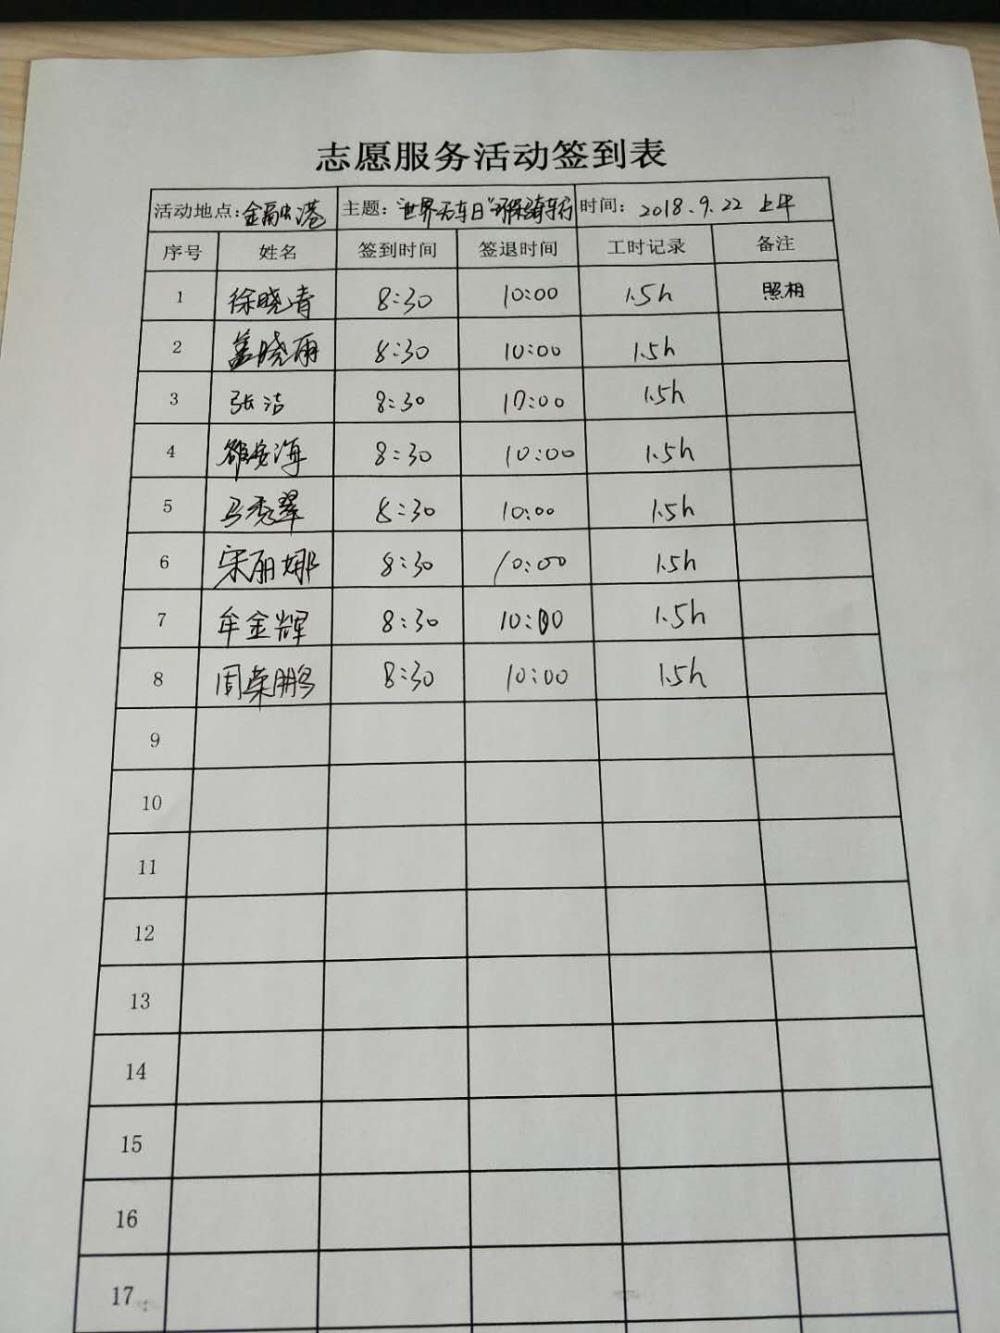 志愿服务活动签到表
活动地点:金融中港 主题:"世界无车日"环保骑车行 时间: 2018.9.22 上午
序号 姓名 签到时间 签退时间 工时记录 备注
1 徐晓青 8:30 10:00 1.5h 照相
2 盖晓雨 8:30 10:00 1.5h
3 张洁 8:30 10:00 1.5h
4 8:30 10:00 1.5h
5 马秀翠 8:30 10:00 1.5h
6 宋丽娜 8:30 10:00 1.5h
7 牟金辉 8:30 10:00 1.5h
8 周荣鹏 8:30 10:00 1.5h
9
10
11
12
13
14
15
16
17